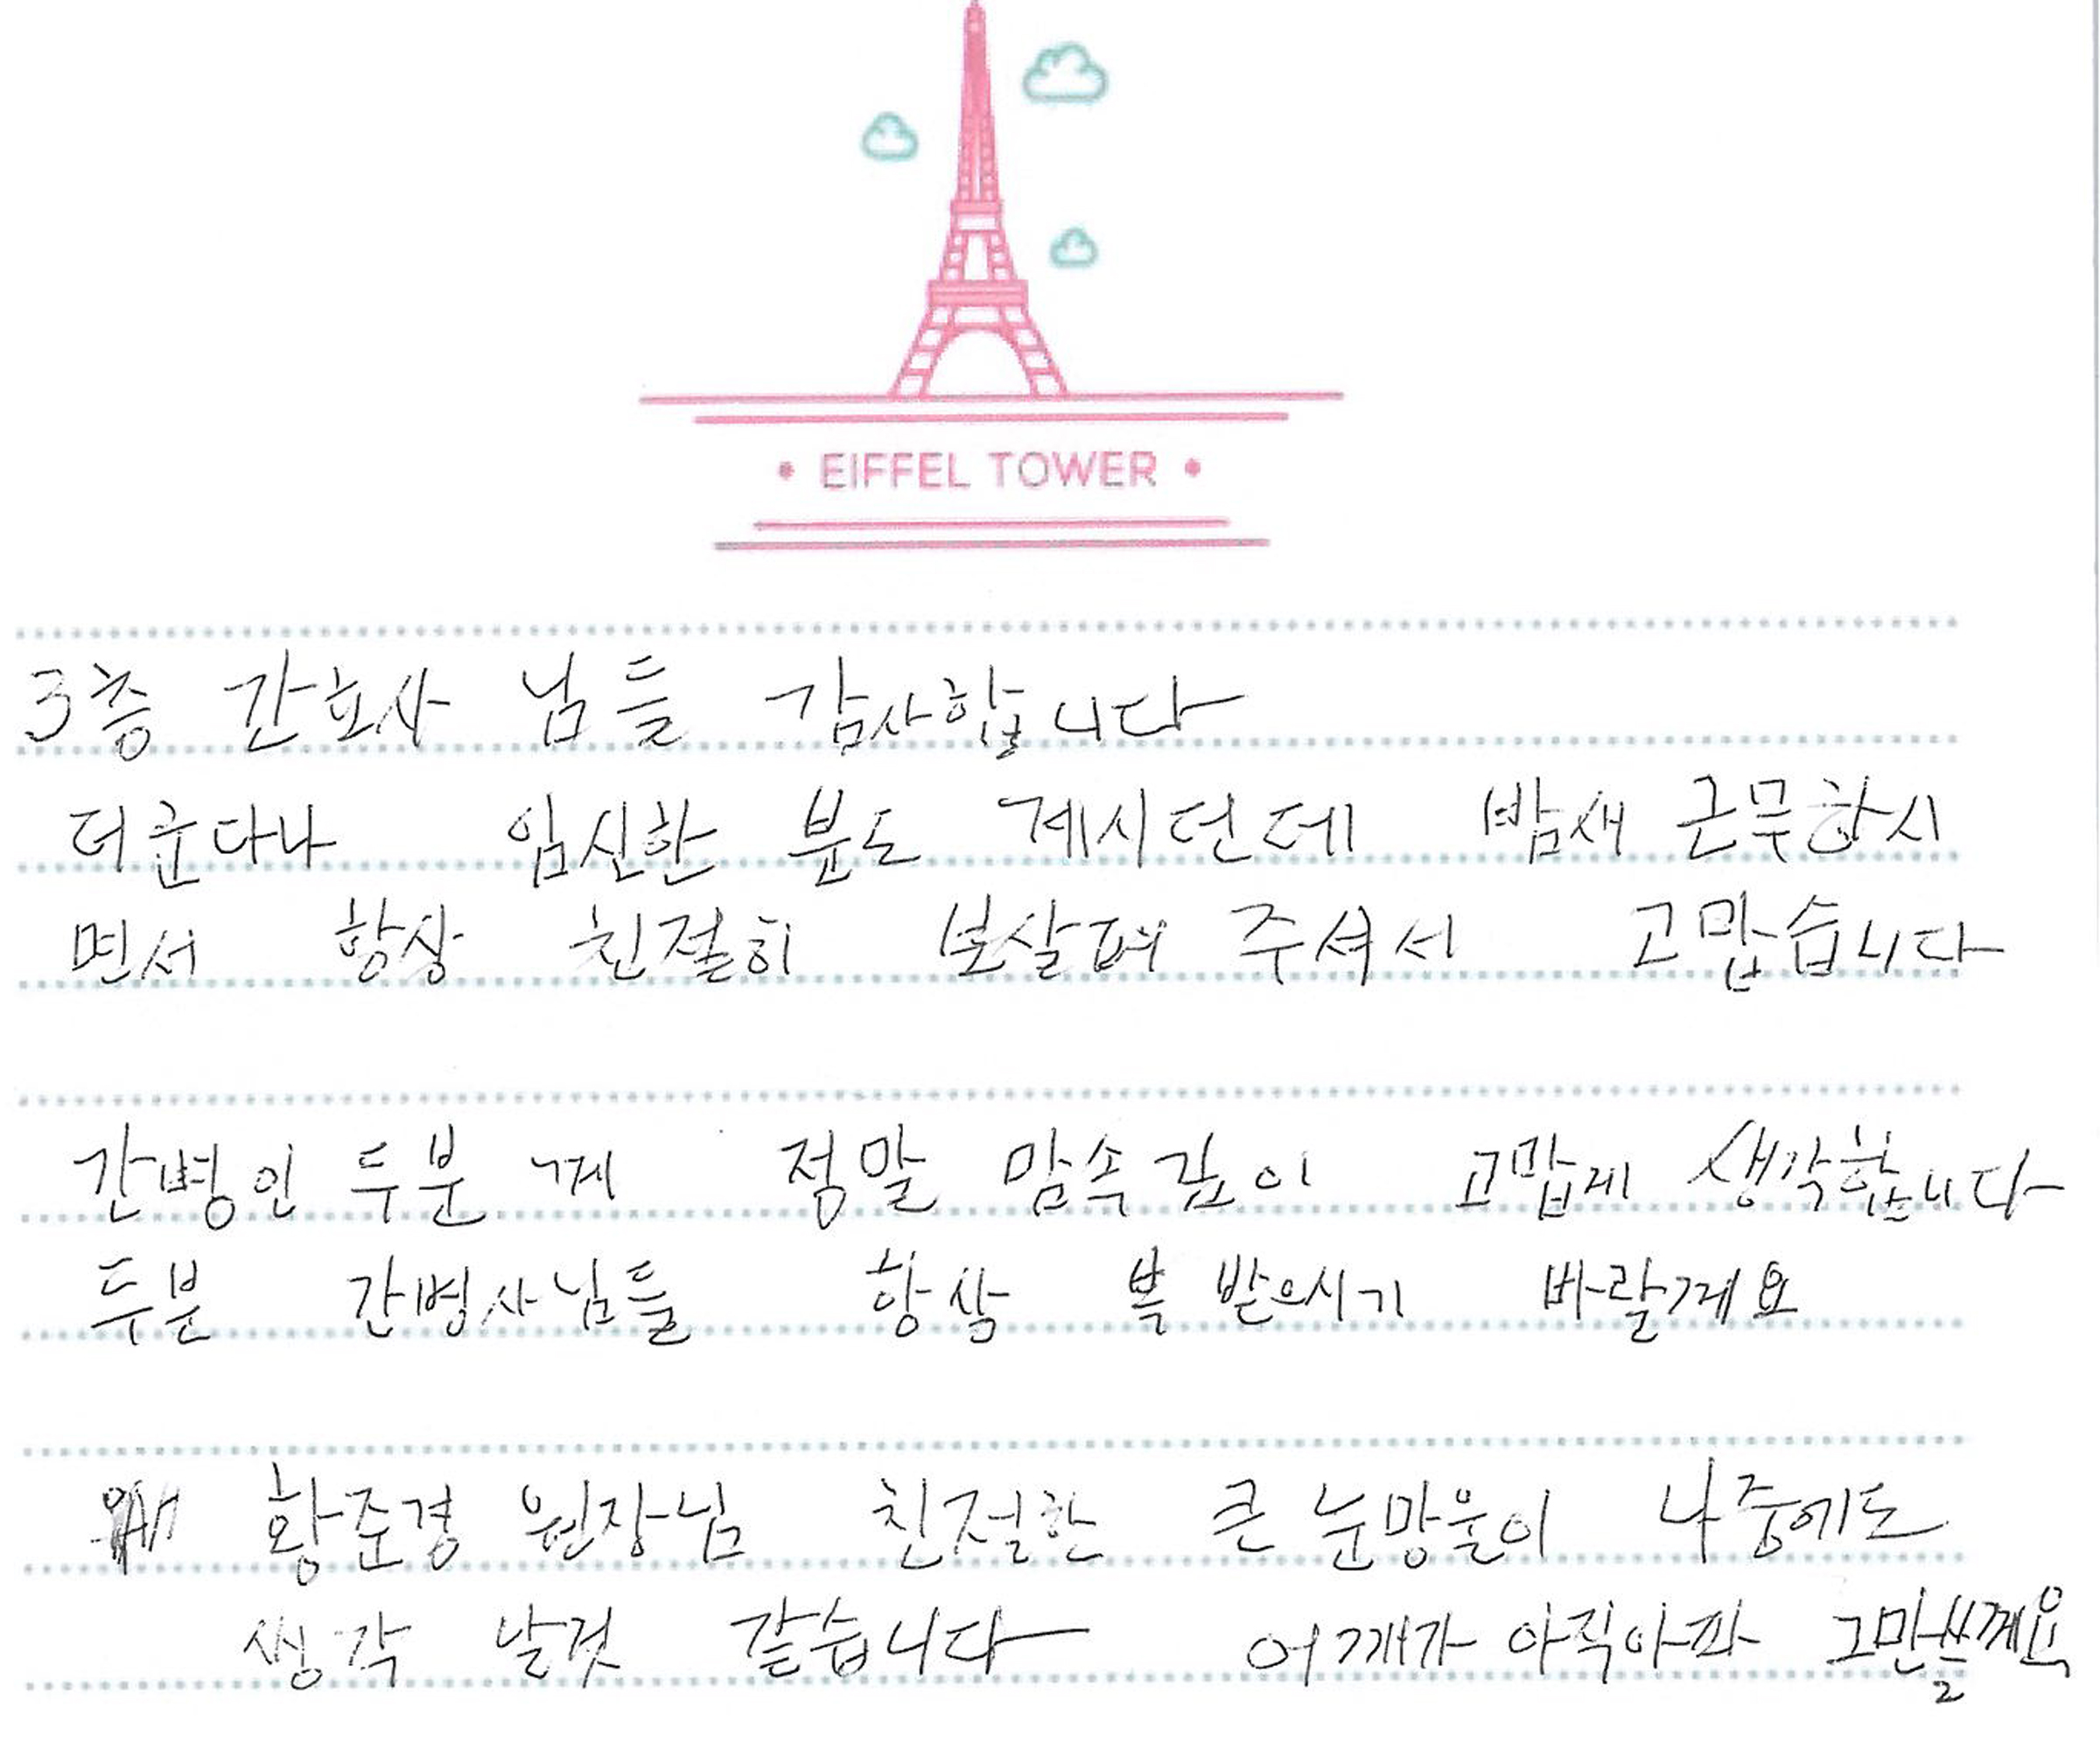 EIFFEL TOWER
3층 간호사 님들 감사합니다
더군다나 임신한 분도 계시던데 밤새 근무하시
면서 항상 친절히 보살펴 주셔서 고맙습니다
간병인 두분 께 정말 맘속깊이 고맙게 생각합니다
두분 간병사님들 항상 복 받으시기 바랄께요
황준경 원장님 친절한 큰 눈망울이 나중에도
생각 날것 같습니다 어깨가 아직아파 그만쓸께요